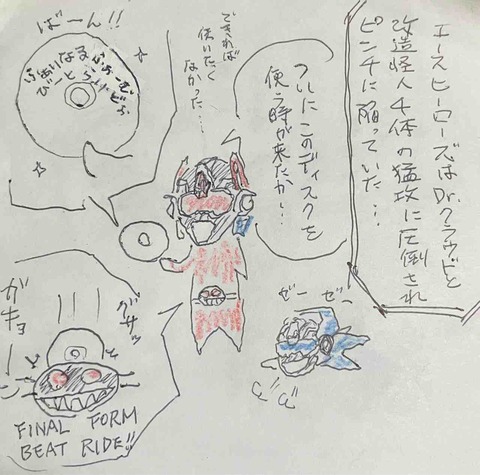 エースヒーローズはDr.クラウドと
改造怪人4体の猛攻に圧倒され
ピンチに陥っていた…
ついにこのディスクを
使う時が来たか…
できれば
使いたく
なかった…
ばーん!!
ふぁいなるふぉーむ
びーとらいどぉ
ぜーぜー
グサッ
ガキョーン
FINAL FORM
BEAT RIDE!!